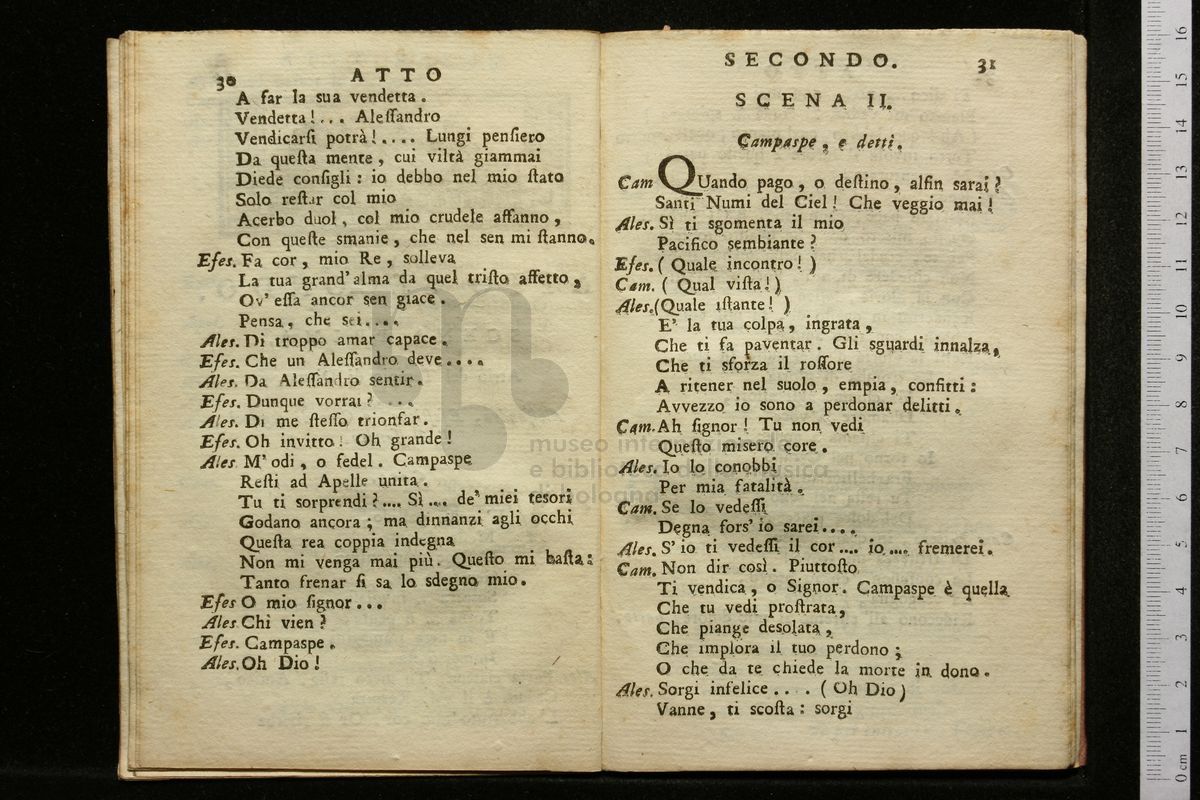 30 ATTO
A far la sua vendetta.
Vendetta!... Aleſſandro
Vendicarſi potrà!.... Lungi penſiero
Da queſta mente, cui viltà giammai
Diede conſigli: io debbo nel mio ſtato
Solo reſtar col mio
Acerbo duol, col mio crudele affanno,
Con queſte smanie, che nel sen mi ſtanno.
Efes. Fa cor, mio Re, solleva
La tua grand' alma da quel triſto affetto,
Ov' eſſa ancor sen giace.
Pensa, che sei....
Ales. Di troppo amar capace.
Efes. Che un Aleſſandro deve....
Ales. Da Aleſſandro sentir.
Efes. Dunque vorrai? ...
Ales. Di me ſteſſo trionfar.
Efes. Oh invitto! Oh grande!
Ales M' odi, o fedel. Campaspe
Reſti ad Apelle unita.
Tu ti sorprendi?.... Sì.... de' miei tesori
Godano ancora; ma dinnanzi agli occhi
Queſta rea coppia indegna
Non mi venga mai più. Queſto mi baſta:
Tanto frenar ſi sa lo sdegno mio.
Efes O mio ſignor...
Ales Chi vien?
Efes. Campaspe.
Ales. Oh Dio!
SECONDO. 31
SCENA II.
Campaspe, e detti.
Cam QUando pago, o deſtino, alfin sarai?
Santi Numi del Ciel! Che veggio mai!
Ales. Sì ti sgomenta il mio
Pacifico sembiante?
Efes. ( Quale incontro! )
Cam. ( Qual viſta! )
Ales. (Quale iſtante! )
E' la tua colpa, ingrata,
Che ti fa paventar. Gli sguardi innalza,
Che ti sforza il roſſore
A ritener nel suolo, empia, confitti:
Avvezzo io sono a perdonar delitti.
Cam. Ah ſignor! Tu non vedi
Queſto misero core.
Ales. Io lo conobbi
Per mia fatalità.
Cam. Se lo vedeſſi
Degna fors' io sarei....
Ales. S' io ti vedeſſi il cor.... io.... fremerei.
Cam. Non dir così. Piuttoſto
Ti vendica, o Signor. Campaspe è quella
Che tu vedi proſtrata,
Che piange desolata,
Che implora il tuo perdono;
O che da te chiede la morte in dono.
Ales. Sorgi infelice.... ( Oh Dio )
Vanne, ti scoſta: sorgi
museo internazionale
e biblioteca della musica
di bologna
0 cm 1 2 3 4 5 6 7 8 9 10 11 12 13 14 15 16